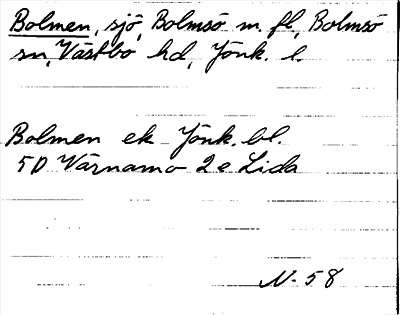 Bolmen, sjö, Bolmsö m. fl., Bolmsö
sn, Västbo hd, Jönk. l.
Bolmen ek Jönk. bl.
5D Värnamo 2e Lida
N-58